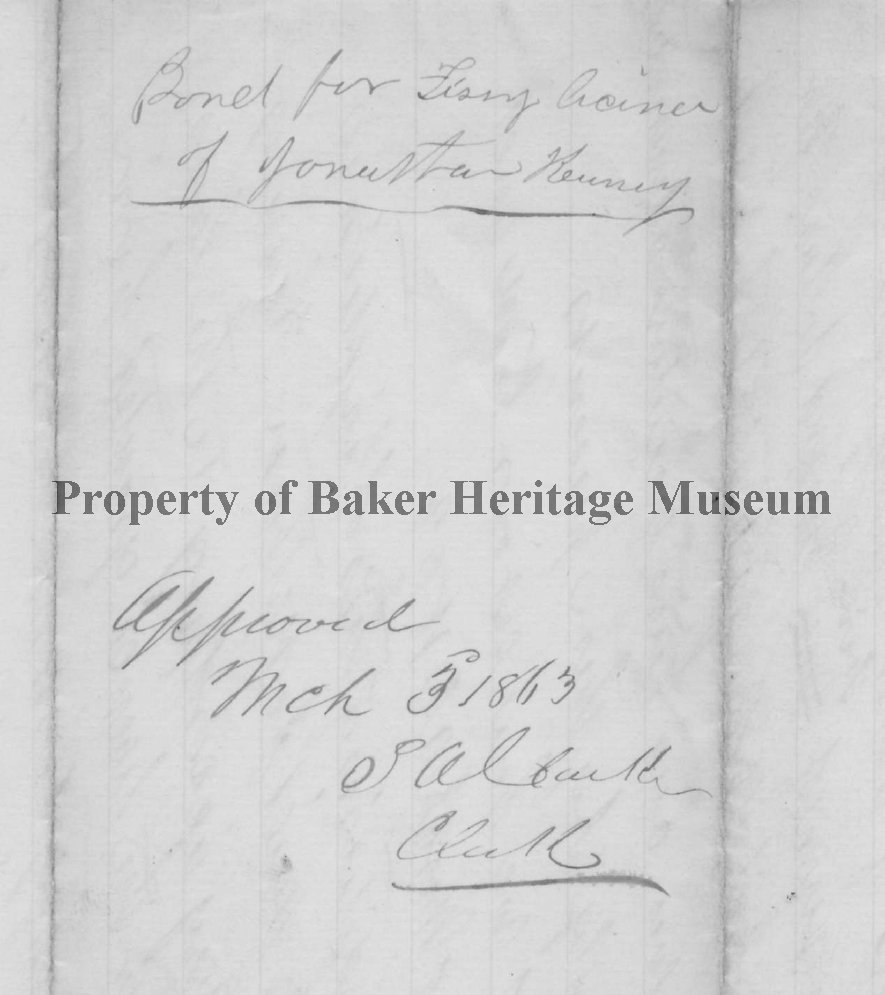 Bond for Fisry licince
of Jonathan Kenney
Property of Baker Heritage Museum
Approved
Mch 3 1863
S A Clarke
Clerk